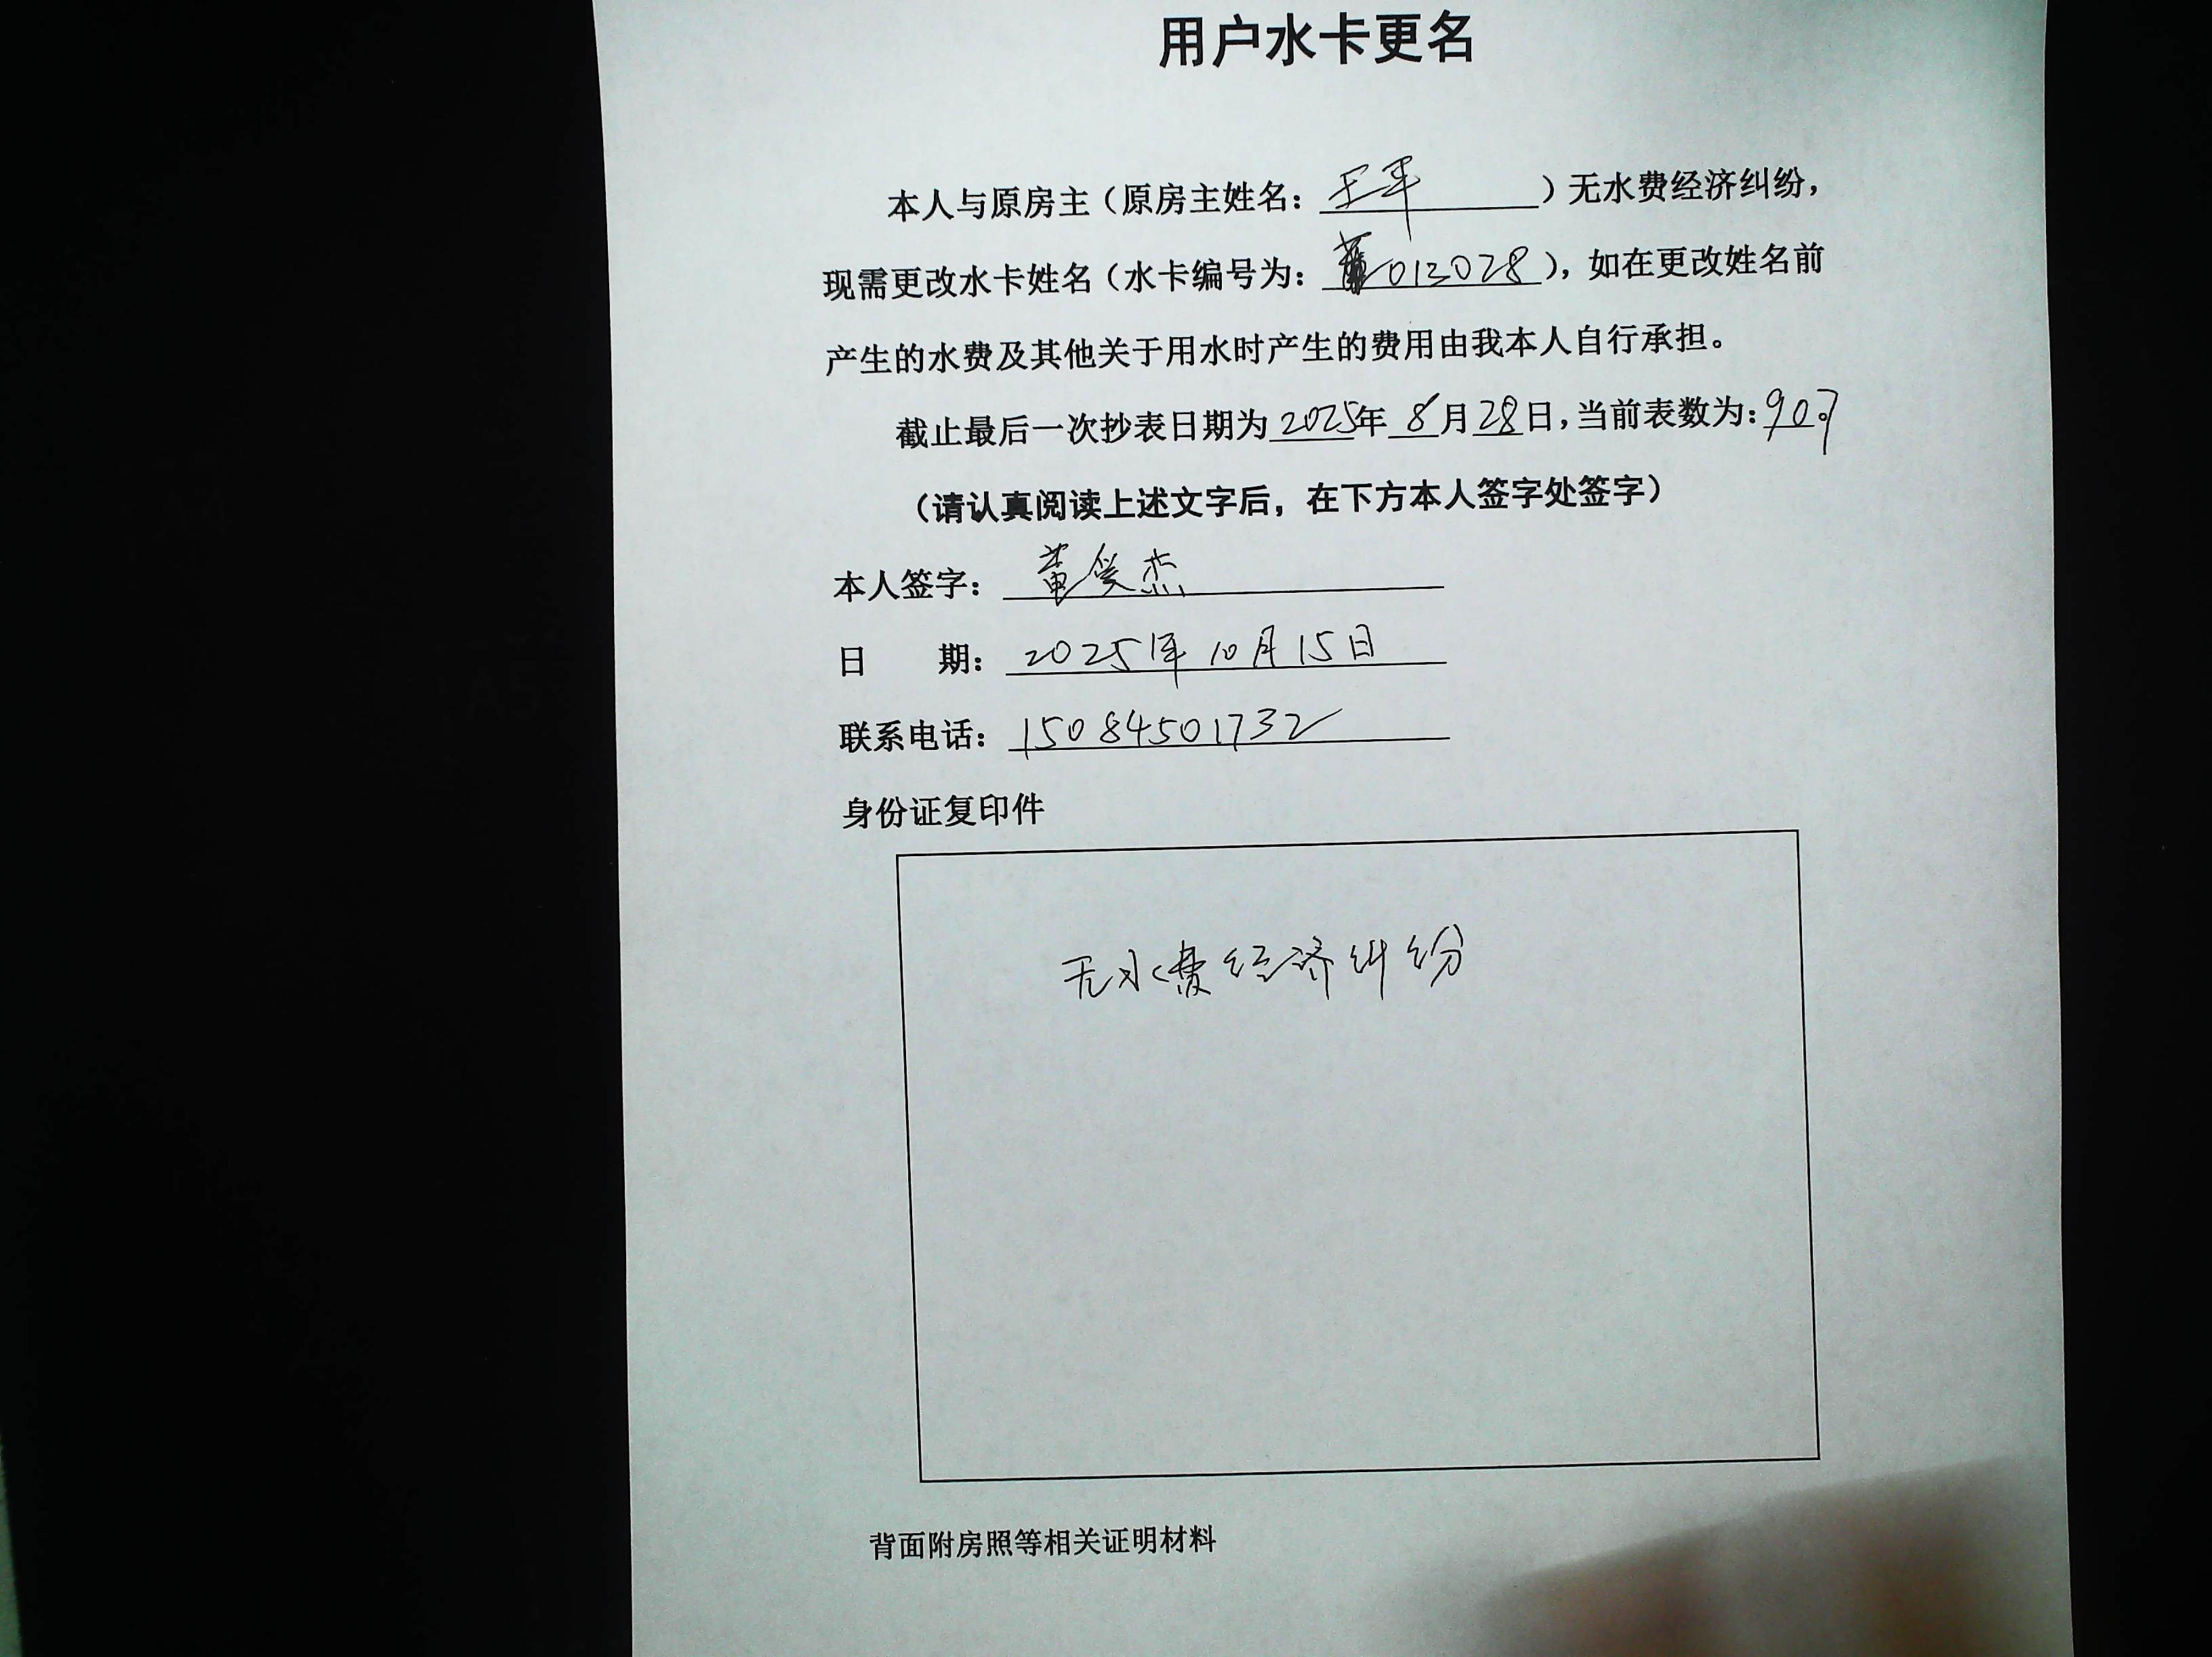 用户水卡更名
本人与原房主（原房主姓名：王平）无水费经济纠纷，
现需更改水卡姓名（水卡编号为：012028），如在更改姓名前
产生的水费及其他关于用水时产生的费用由我本人自行承担。
截止最后一次抄表日期为2025年8月28日，当前表数为：907
（请认真阅读上述文字后，在下方本人签字处签字）
本人签字：黄笑杰
日 期：2025年10月15日
联系电话：15084501732
身份证复印件
无水费经济纠纷
背面附房照等相关证明材料